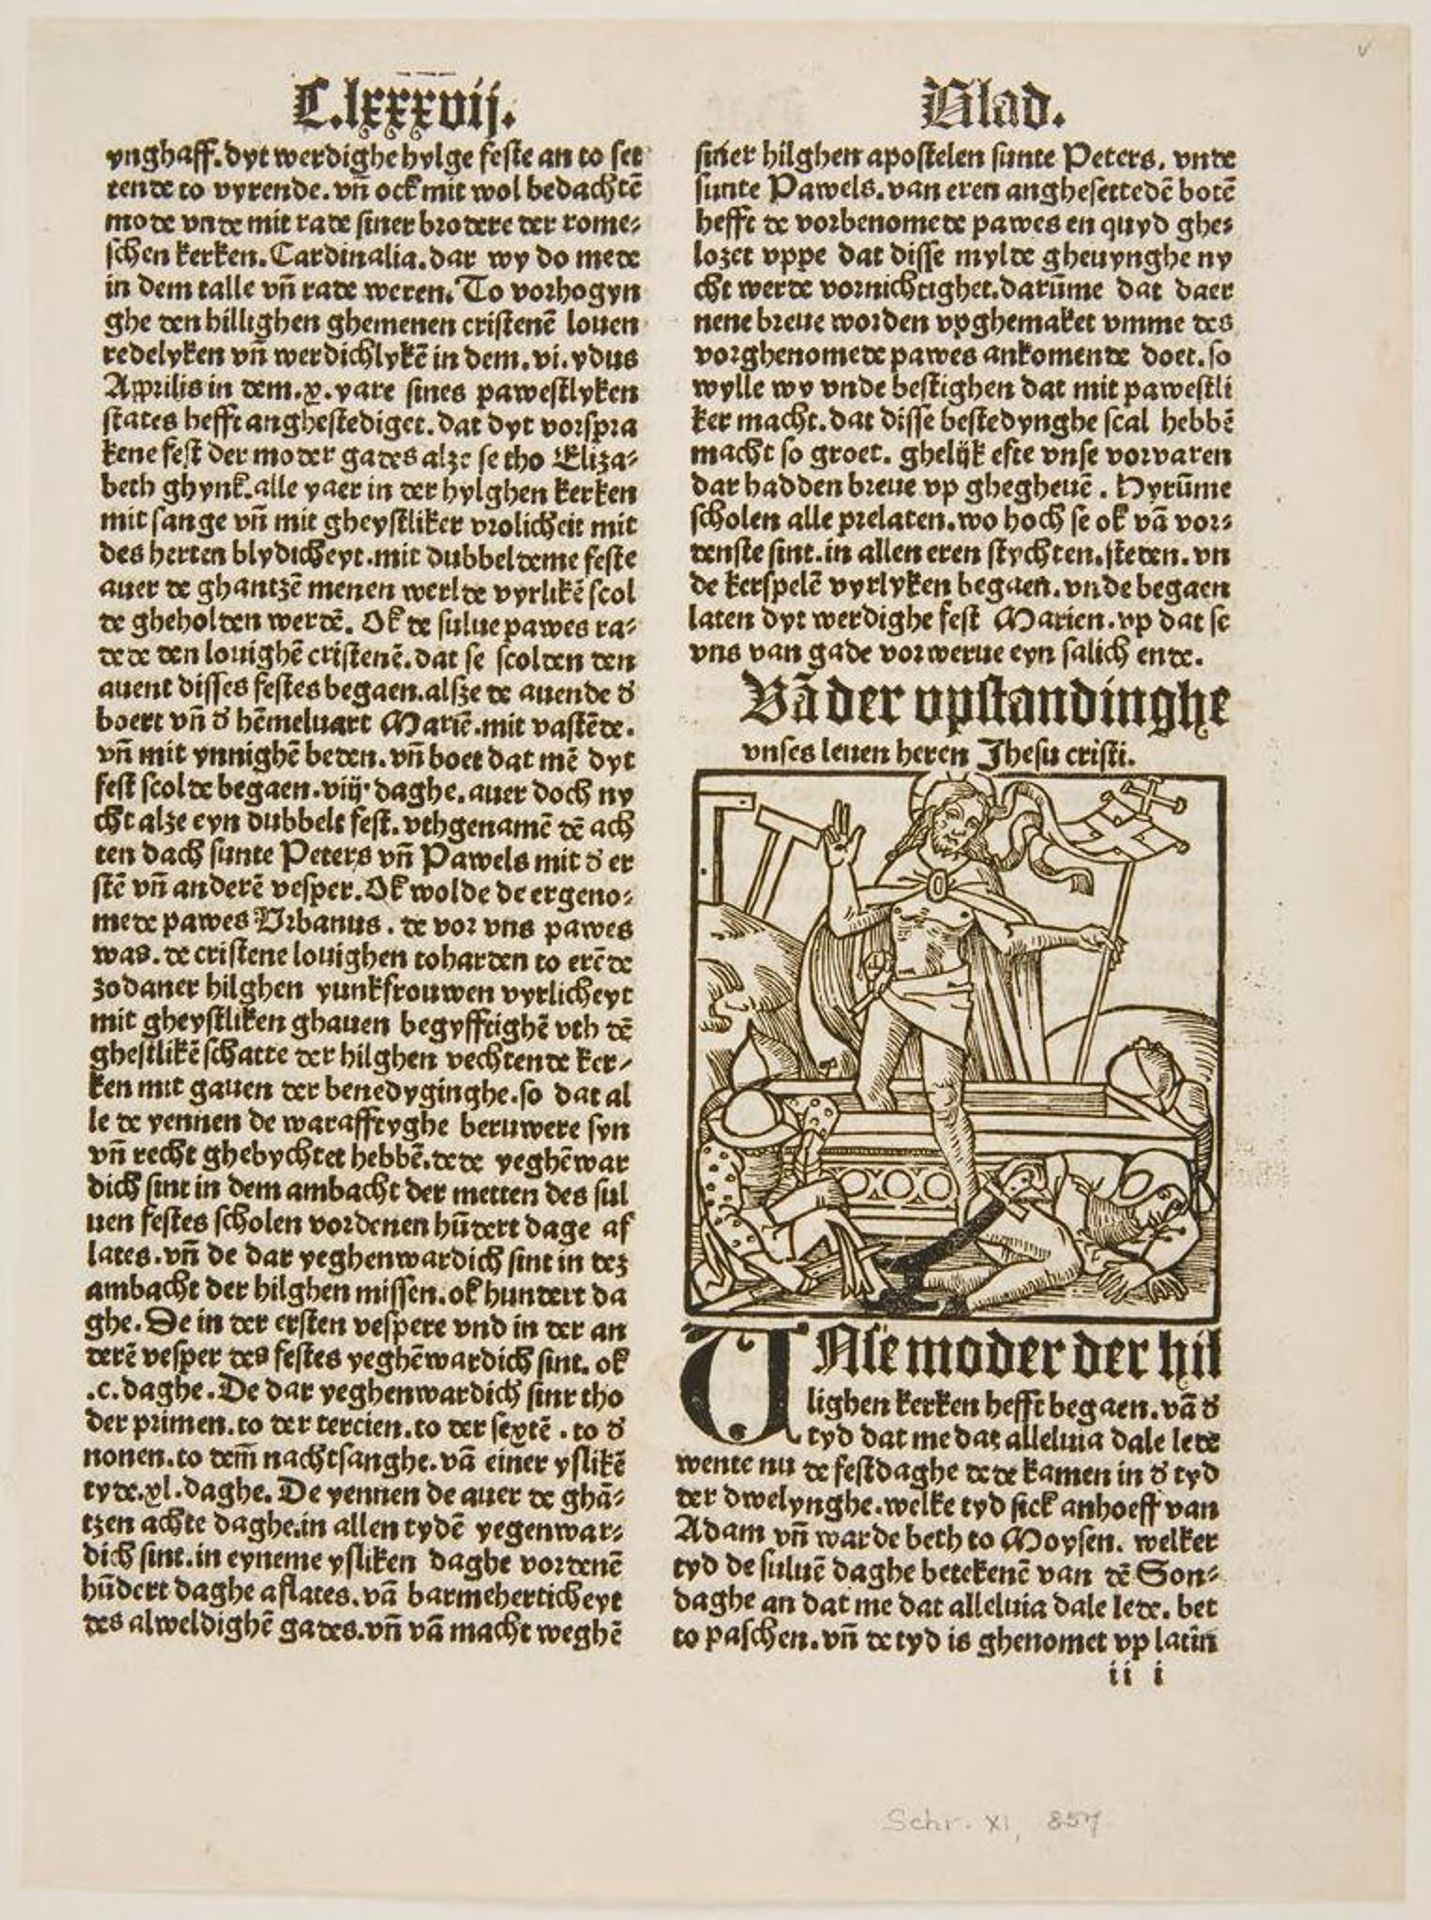 C.lxxxvij. Blad.
ynghaff. dyt werdighe hylge feste an to set
tende to vyrende. vñ ock mit wol bedachtē
mode vnde mit rade siner brodere der rome⸗
schen kerken. Cardinalia. dar wy do mede
in dem talle vñ rade weren. To vorhogyn
ghe den hillighen ghemenen cristenē louen
redelyken vñ werdichlykē in dem. vi. ydus
Aprilis in dem. x. yare sines pawestlyken
states hefft anghestediget. dat dyt vorspra
kene fest der moder gades alze se tho Eliza⸗
beth ghynk. alle yaer in der hylghen kerken
mit sange vñ mit gheystliker vrolicheit mit
des herten blydicheyt. mit dubbeldeme feste
auer de ghantzē menen werlde vyrlikē scol
de gheholden werdē. Ok de sulue pawes ra⸗
dede den louighē cristenē. dat se scolden den
auent disses festes begaen. alsze de auende d̕
boert vñ d̕ hēmeluart Mariē. mit vastēde.
vñ mit ynnighē beden. vñ boet dat mē dyt
fest scolde begaen. viij. daghe. auer doch ny
cht alze eyn dubbelt fest. vthgenamē dē ach
ten dach sunte Peters vñ Pawels mit d̕ er
stē vñ anderē vesper. Ok wolde de ergeno⸗
mede pawes Vrbanus. de vor vns pawes
was. de cristene louighen toharden to erēde
zodaner hilghen yunkfrouwen vyrlicheyt
mit gheystliken ghauen begyfftighē vth dē
ghestlikē schatte der hilghen vechtende ker⸗
ken mit gauen der benedyginghe. so dat al
le de yennen de warafftyghe beruwere syn
vñ recht ghebychtet hebbē. dede yeghēwar
dich sint in dem ambacht der metten des sul
uen festes scholen vordenen hūdert dage af
lates. vñ de dar yeghenwardich sint in dez
ambacht der hilghen missen. ok hundert da
ghe. De in der ersten vespere vnd in der an
derē vesper des festes yeghēwardich sint. ok
.c. daghe. De dar yeghenwardich sint tho
der primen. to der tercien. to der sextē. to d̕
nonen. to dem̄ nachtsanghe. vā einer yslikē
tyde. xl. daghe. De yennen de auer de ghā⸗
tzen achte daghe. in allen tydē yegenwar⸗
dich sint. in eyneme ysliken daghe vordenē
hūdert daghe aflates. vā barmeherticheyt
des alweldighē gades. vñ vā macht weghē
siner hilghen apostelen sunte Peters. vnde
sunte Pawels. van eren anghesettedē botē
hefft de vorbenomede pawes en quyd ghe⸗
lozet vppe dat disse mylde gheuynghe ny
cht werde vornichtighet. darūme dat daer
nene breue worden vpghemaket vmme des
vorghenomede pawes ankomende doet. so
wylle wy vnde bestighen dat mit pawestli
ker macht. dat disse bestedynghe scal hebbē
macht so groet. ghelijk efte vnse vorvaren
dar hadden breue vp ghegheuē. Hyrūme
scholen alle prelaten. wo hoch se ok vā vor⸗
denste sint. in allen eren stychten. steden. vn
de kerspelē vyrlyken begaen. vnde begaen
laten dyt werdighe fest Marien. vp dat se
vns van gade vorwerue eyn salich ende.
Vā der vpstandinghe
vnses leuen heren Jhesu cristi.
VNse moder der hil
lighen kerken hefft begaen. vā d̕
tyd dat me dat alleluia dale lede
wente nu de festdaghe dede kamen in d̕ tyd
der dwelynghe. welke tyd sick anhoeff van
Adam vñ warde beth to Moysen. welker
tyd de suluē daghe betekenē van dē Son⸗
daghe an dat me dat alleluia dale lede. bet
to paschen. vñ de tyd is ghenomet vp latin
ii i
Schr. XI, 857